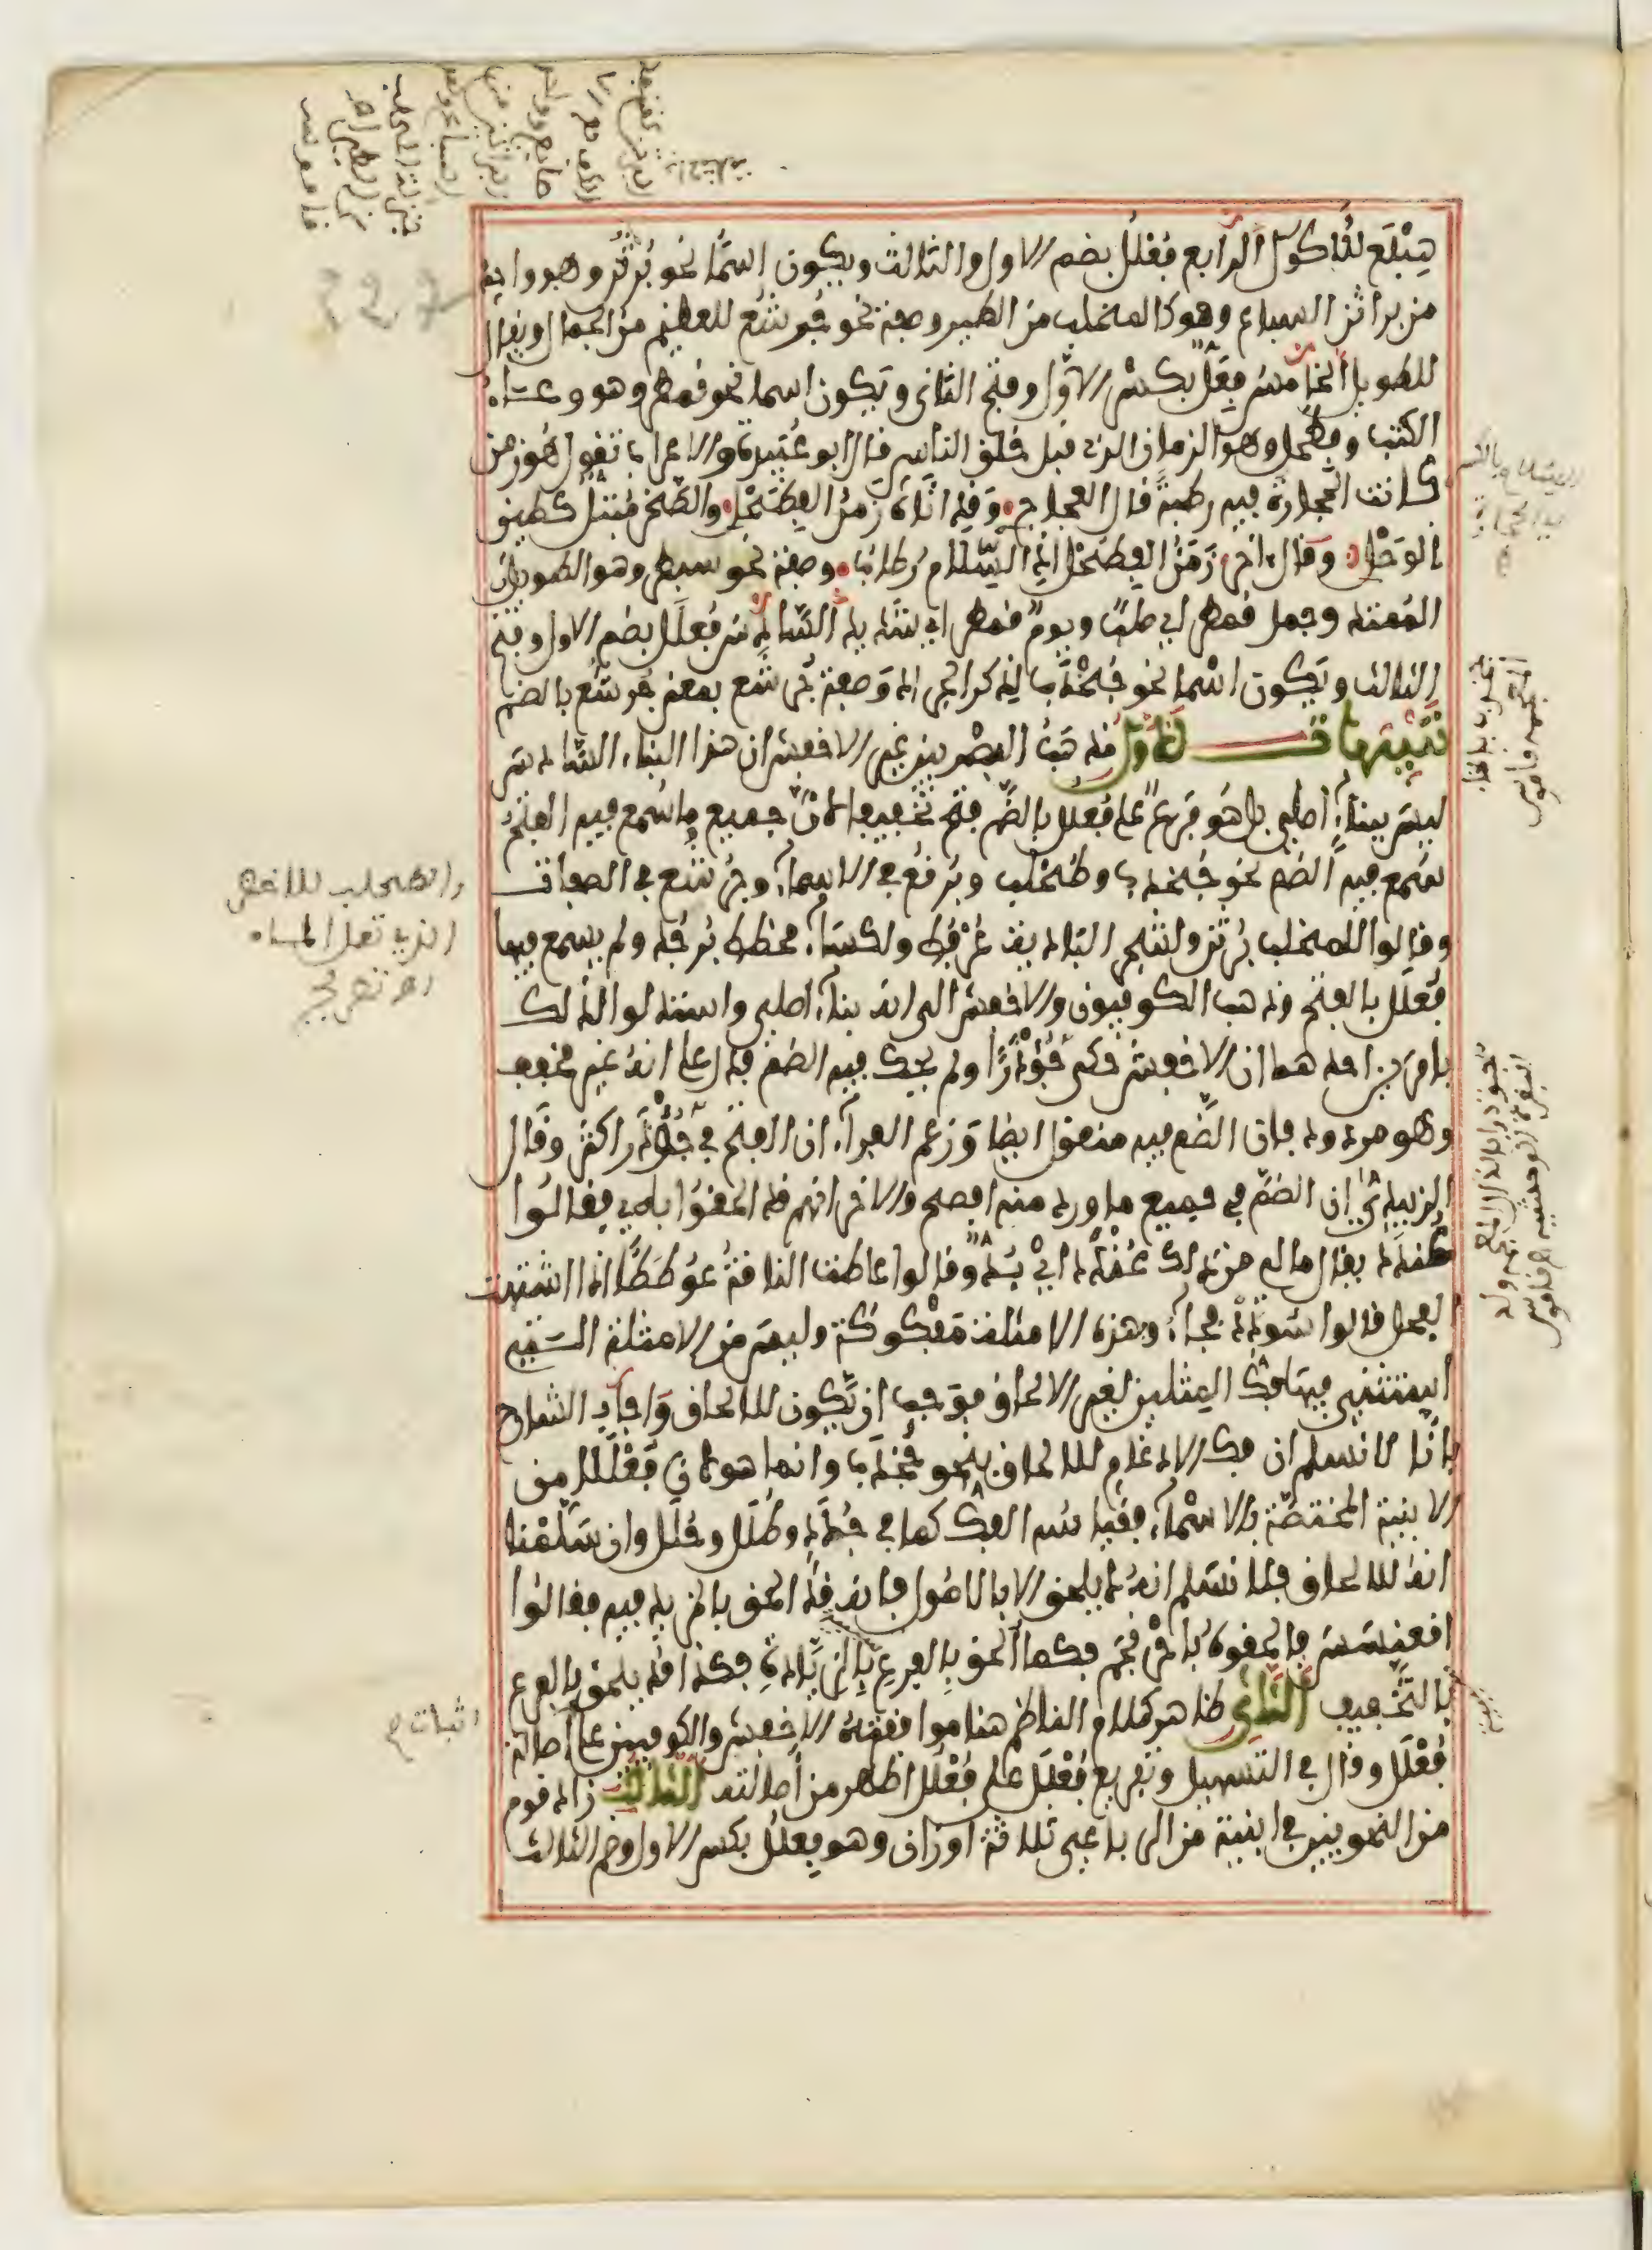 هبلع للاكول الرابع فعلل بضم الاول والثالث ويكون اسما نحو برثن وهو واحد
من براثن السباع وهو كالمخلب من الطير وصفة نحو جرشع للعظيم من الجمال ويقال
للطويل الخامس فعل بكسر الاول وفتح الثاني ويكون اسما نحو قمطر وهو وعاء
الكتب وفطحل وهو الزمان الذي قبل خلق الناس قال ابو عبيدة والاعراب تقول هو زمن
كانت الحجارة فيه رطبة قال العجاج وقد اتاه زمن الفطحل والصخر مبتل كطين
الوحل وقال اخر زمن الفطحل اذ السلام رطاب وصفة نحو سبطر وهو الطويل
الممتد وجمل قمطر اي صلب ويوم قمطر اي شديد السادس فعلل بضم الاول وفتح
الثالث ويكون اسما نحو جخدب لذكر الجراد وصفة نحو جرشع بمعنى جرشع بالضم
تنبيهات الاول مذهب البصريين غير الاخفش ان هذا البناء السادس
ليس ببناء اصلي بل هو فرع على فعلل بالضم فتح تخفيفا لان جميع ما سمع فيه الفتح
سمع فيه الضم نحو جخدب وطحلب وبرقع في الاسماء وجرشع في الصفات
وقالوا للمخلب برثن ولشجر البادية عرفط ولكساء مخطط برجد ولم يسمع فيها
فعلل بالفتح وذهب الكوفيون والاخفش الى انه بناء اصلي واستدلوا لذلك
بامرين احدهما ان الاخفش حكى جؤذرا ولم يحك فيه الضم فدل على انه غير مخفف
وهو مردود فان الضم فيه منقول ايضا وزعم الفراء ان الفتح في جؤذر اكثر وقال
الزبيدي ان الضم في جميع ما ورد منه افصح والاخر انهم قد الحقوا به فقالوا
عندد يقال مالي من ذلك عندد اي بد وقالوا عاطت الناقة عوططا اذا اشتهت
الفحل قالوا سودد فجاء وهذه الامثلة مفكوكة وليس من الامثلة التي
استثني فيها فك المثلين لغير الالحاق فوجب ان يكون للالحاق واجاب الشارح
بانا لا نسلم ان فك الادغام للالحاق بنحو جخدب وانما هو لان فعللا من
الابنية المختصة بالاسماء فقياسه الفك كما في جدد وظلل وحلل وان سلمنا
انه للالحاق فلا نسلم انه لا يلحق الا بالاصول فانه قد الحق بالمزيد فيه فقالوا
اقعنسس فالحقوه باحرنجم فكما الحق بالفرع بالزيادة فكذا قد يلحق بالفرع
بالتخفيف الثاني ظاهر كلام الناظم هنا موافقة الاخفش والكوفيين على اصالة
فعلل وقال في التسهيل وتفريع فعلل على فعلل اظهر من اصالته الثالث زاد قوم
من النحويين في ابنية من الرباعي ثلاثة اوزان وهو فعلل بكسر الاول وضم الثالث
والطحلب للاخضر
الذي تعلى الماء
اهـ تصريح
اثبات م